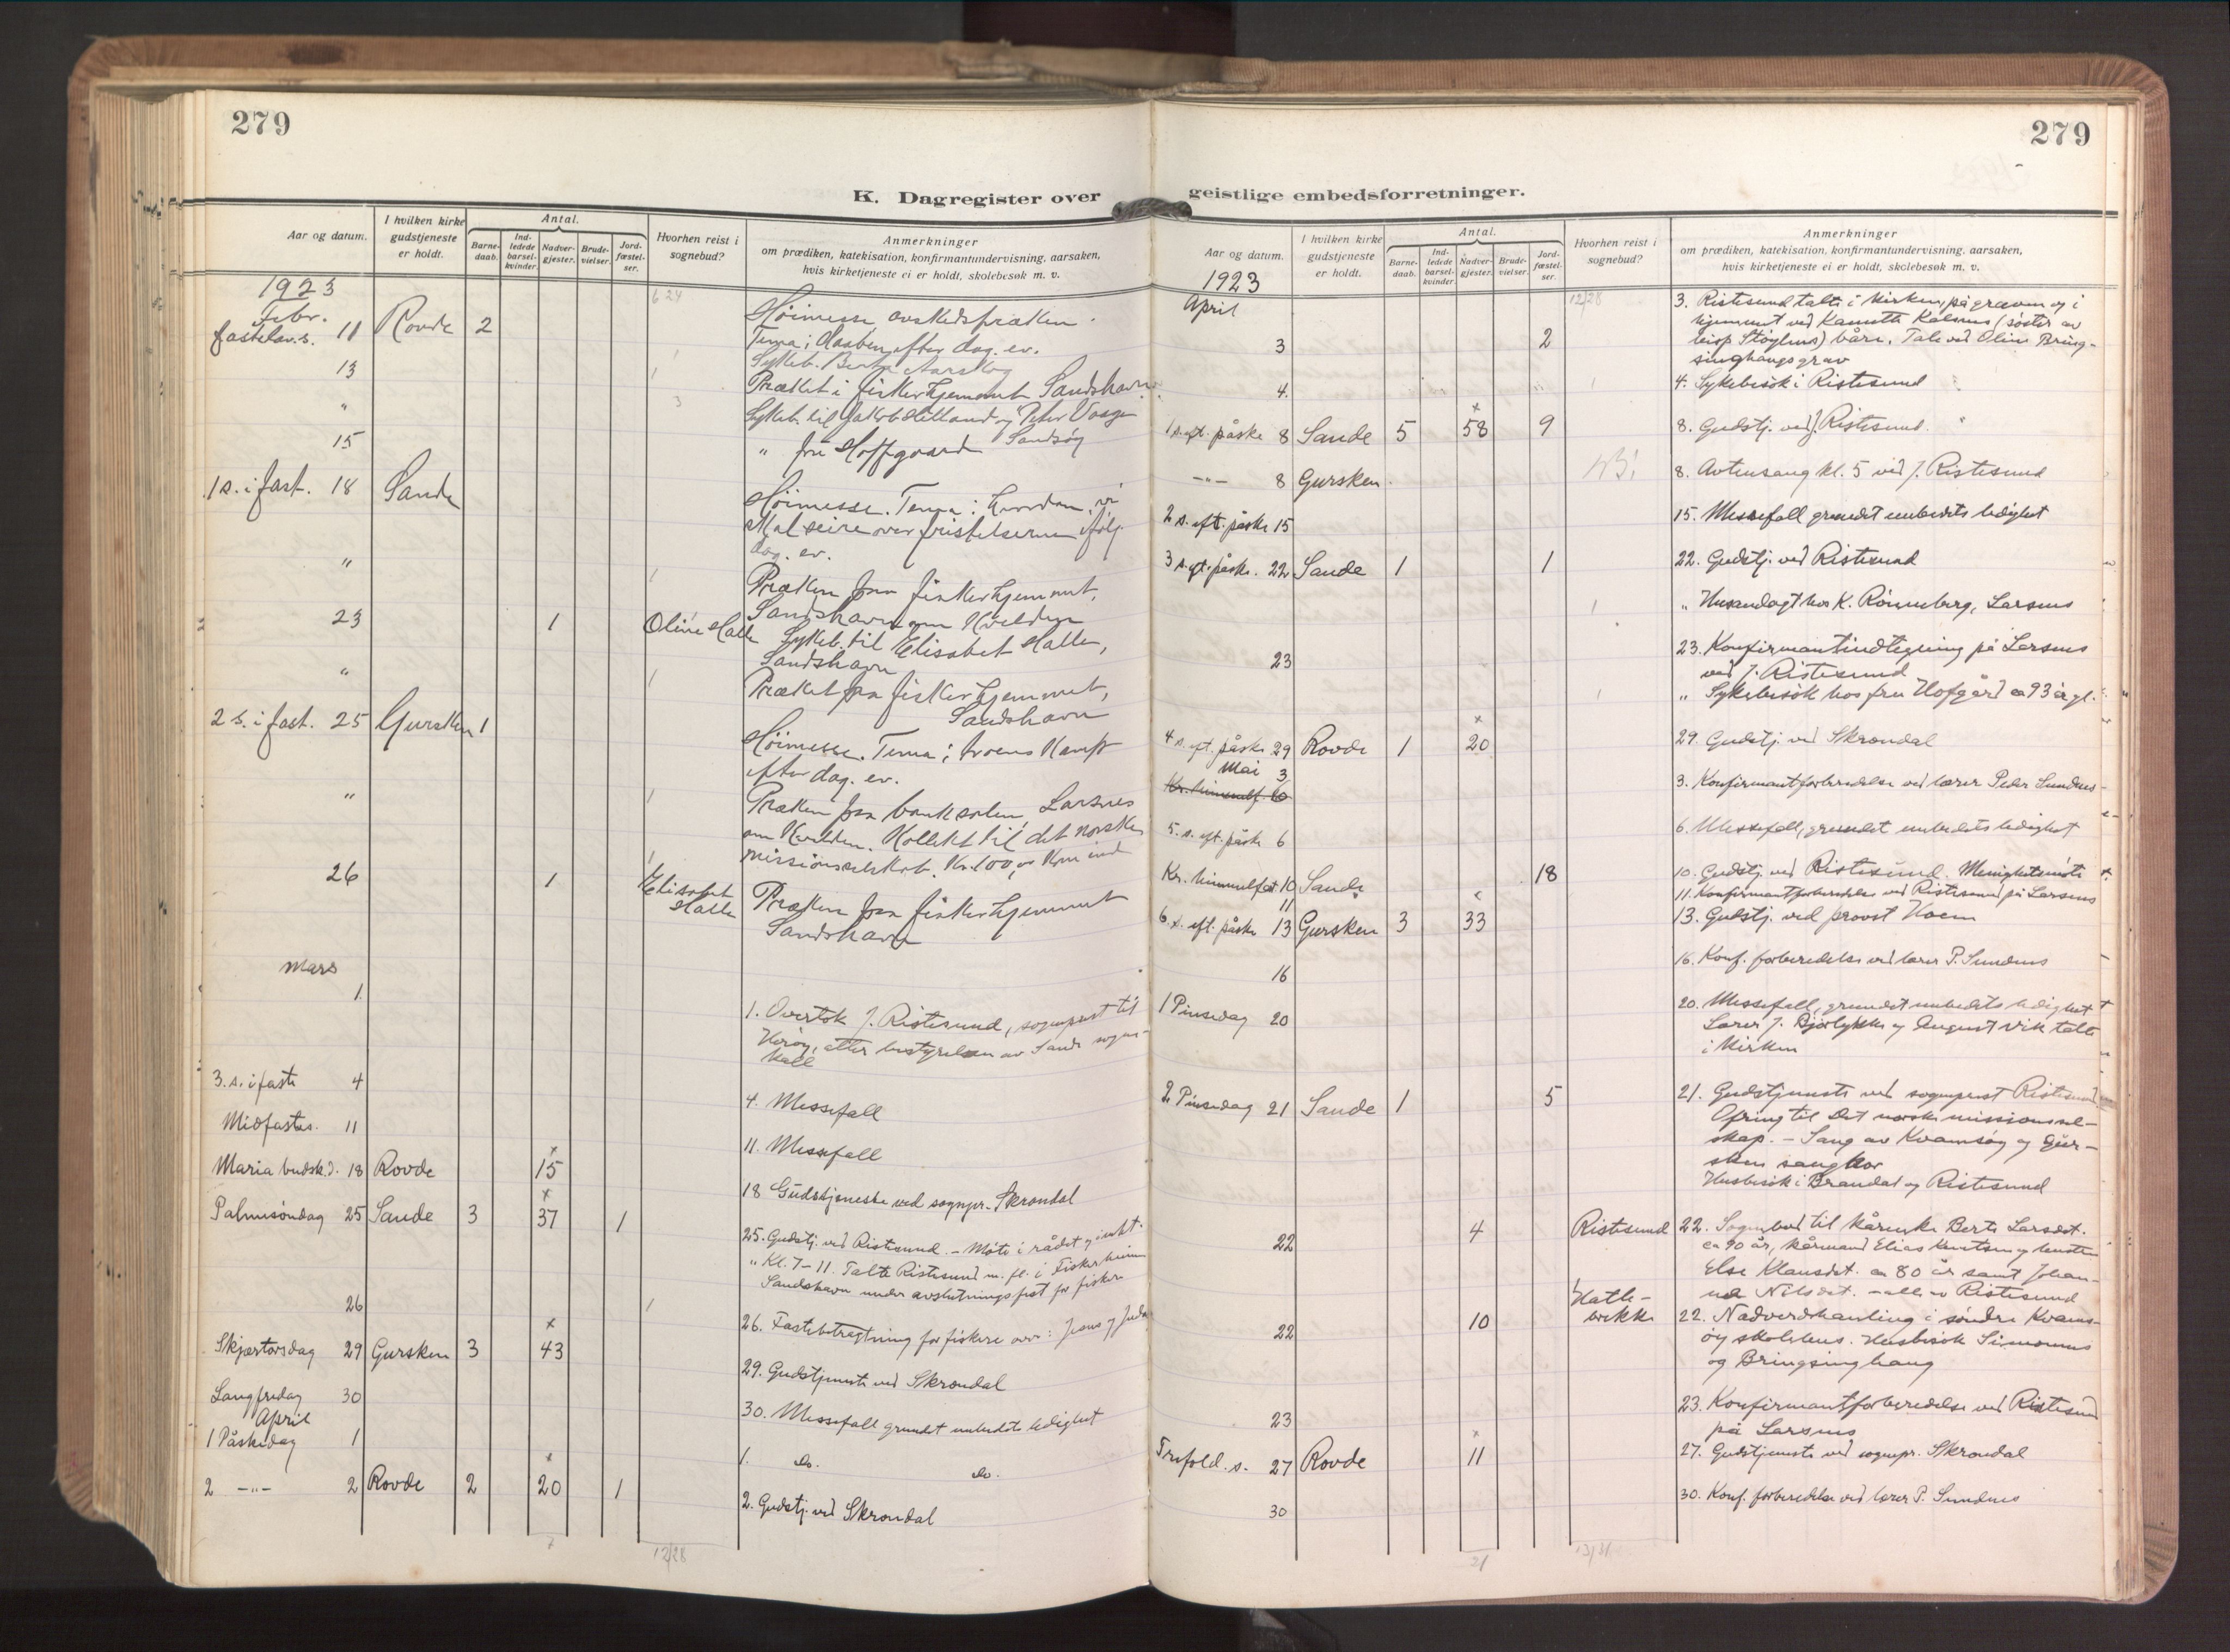 279
K. Dagregister over
Aar og datum.
I hvilken kirke gudstjeneste er holdt.
Antal.
Barnedaab.
Indledede barselkvinder.
Nadvergjester.
Brudevielser.
Jordfæstelser.
Hvorhen reist i sognebud?
Anmerkninger
om prædiken, katekisation, konfirmantundervisning, aarsaken,
hvis kirketjeneste ei er holdt, skolebesøk m. v.
1923
Febr.
fastelav.s. 11 Rovde 2
Høimesse avskedspræken.
Tema: Daaben efter dag. ev.
13
Sykeb. Berte Aarskog
Præket i fiskerhjemmet Sandshavn
"
Sykeb. til Jakob Hilland og Peter Vaage
Sandsøy
15
" fru Hoffgaard
1 s. i fast. 18 Sande
Høimesse. Tema: hvordan vi
skal seire over fristelserne ifølg.
dag. ev.
"
Præken paa fiskerhjemmet,
Sandshavn om kvelden
23 1 Oline Halle
Sykeb. til Elisabet Halle,
Sandshavn
"
Præket paa fiskerhjemmet,
Sandshavn
2 s. i fast. 25 Gursken 1
Høimesse. Tema: troens kamp
efter dag. ev.
"
Præken paa banksalen, Larsnes
om kvelden. Kollekt til det norske
missionsselskab. Kr. 100,00 kom ind
26 1 Elisabet Halle
Præken paa fiskerhjemmet
Sandshavn
Mars
1.
1. Overtok J. Ristesund, sogneprest til
Herøy, atter bestyrelsen av Sande sogne-
kall
3. s. i faste 4
4. Messefall
Midfastes. 11
11. Messefall
Maria budsk.d. 18 Rovde 15
18 Gudstjeneste ved sognepr. Skrondal
Palmesøndag 25 Sande 3 37 1
25. Gudstj. ved Ristesund. - Møte i rådet og
" Kl. 7-11. Talte Ristesund m. fl. i Fiskerheimen
Sandshavn under avslutningsfest for fiskere
26
26. Fastebetragtning for fiskere over: Jesus og Judas
Skjærtorsdag 29 Gursken 3 43
29. Gudstjeneste ved Skrondal
Langfredag 30
30. Messefall grundet embedets ledighet
April
1 Påskedag 1
1. do. do.
2 -"- 2 Rovde 2 20 1
2. Gudstj. ved Skrondal
12/28
279
geistlige embedsforretninger.
Aar og datum.
I hvilken kirke gudstjeneste er holdt.
Antal.
Barnedaab.
Indledede barselkvinder.
Nadvergjester.
Brudevielser.
Jordfæstelser.
Hvorhen reist i sognebud?
Anmerkninger
om prædiken, katekisation, konfirmantundervisning, aarsaken,
hvis kirketjeneste ei er holdt, skolebesøk m. v.
1923
April
12/28
3 2
3. Ristesund talte i kirken, på graven og i
hjemmet ved Kamilla Kalsnes (søster av
bisp Støylens) båre. Tale ved Oline Bring-
singhaugs grav
4.
4. Sykebesøk i Ristesund
1 s. eft. påske 8 Sande 5 58 9
8. Gudstj. ved J. Ristesund.
-"- 8 Gursken
8. Avtensang kl. 5 ved J. Ristesund
2 s. eft. påske 15
15. Messefall grundet embedets ledighet
3 s. eft. påske. 22 Sande 1 1
22. Gudstj. ved Ristesund
" Husandagt hos K. Rønneberg, Larsnes
23
23. Konfirmantindtegning på Larsnes
ved J. Ristesund
" Sykebesøk hos fru Hofgård ca 93 år gl.
4 s. eft. påske 29 Rovde 1 20
29. Gudstj. ved Skrondal
Mai 3
3. Konfirmantforberedelse ved lærer Peder Sundnes
Kr. himmelf. 10
5. s. eft. påske 6
6. Messefall, grundet embedets ledighet
Kr. himmelfart 10 Sande 18
10. Gudstj. ved Ristesund. Menighetsmøte
11
11. Konfirmantforberedelse ved Ristesund på Larsnes
6. s. eft. påske 13 Gursken 3 33
13. Gudstj. ved provst Hoem
16
16. Konf. forberedelse ved lærer P. Sundnes
1 Pinsedag 20
20. Messefall, grundet embedets ledighet
Lærer J. Bjørlykke og August Vik talte
i kirken
2 Pinsedag 21 Sande 1 5
21. Gudstjeneste ved sogneprest Ristesund
Ofring til Det norske missionssel-
skap. - Sang av Kvamsøy og Gur-
sken sangkor
Husbesøk i Brandal og Ristesund
22 4 Ristesund
22. Sognebud til kårenke Berte Larsdet.
ca 90 år, kårmand Elias Knutsen og hustru
Else Klausdet. ca 80 år samt Johan-
na Nilsdet. - alle av Ristesund
22 10 Hatle-
brekke
22. Nadverdhandling i søndre Kvams-
øy skolehus. Husbesøk Simonnes
og Bringsinghaug
23
23. Konfirmantforberedelse ved Ristesund
på Larsnes
Trefold. s. 27 Rovde 11
27. Gudstjeneste ved sognepr. Skrondal
30
30. Konf. forberedelse ved lærer P. Sundnes
21
13/31